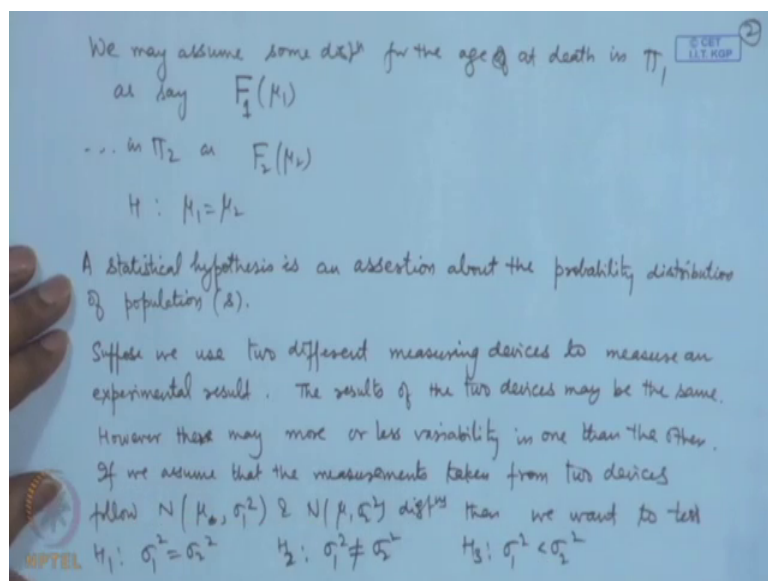 We may assume some distn for the age of at death in π1
as say F1(μ1)
... in π2 as F2(μ2)
H : μ1 = μ2
A statistical hypothesis is an assertion about the probability distribution
of population(s).
Suppose we use two different measuring devices to measure an
experimental result. The results of the two devices may be the same.
However there may more or less variability in one than the other.
If we assume that the measurements taken from two devices
follow N(μ, σ1²) & N(μ, σ2²) distns then we want to test
H1 : σ1² = σ2² H2 : σ1² ≠ σ2² H3 : σ1² < σ2²
© CET
I.I.T. KGP
2
NPTEL